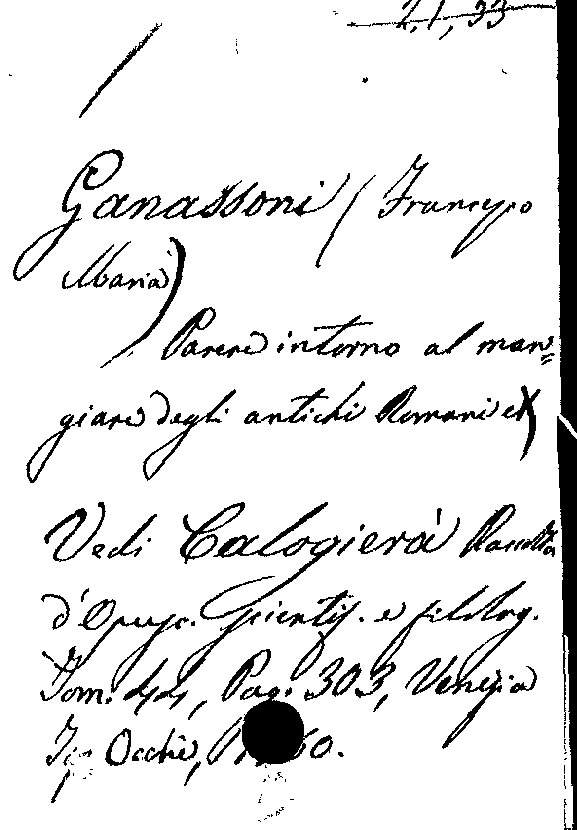 2,1,33
Ganassoni (Francesco
Maria)
Parere intorno al man=
giare degli antichi Romani
Vedi Calogierà Raccolta
d'Opusc. Scientif. e filolog.
Tom. 44, Pag. 303, Venezia
Occhi, 60.